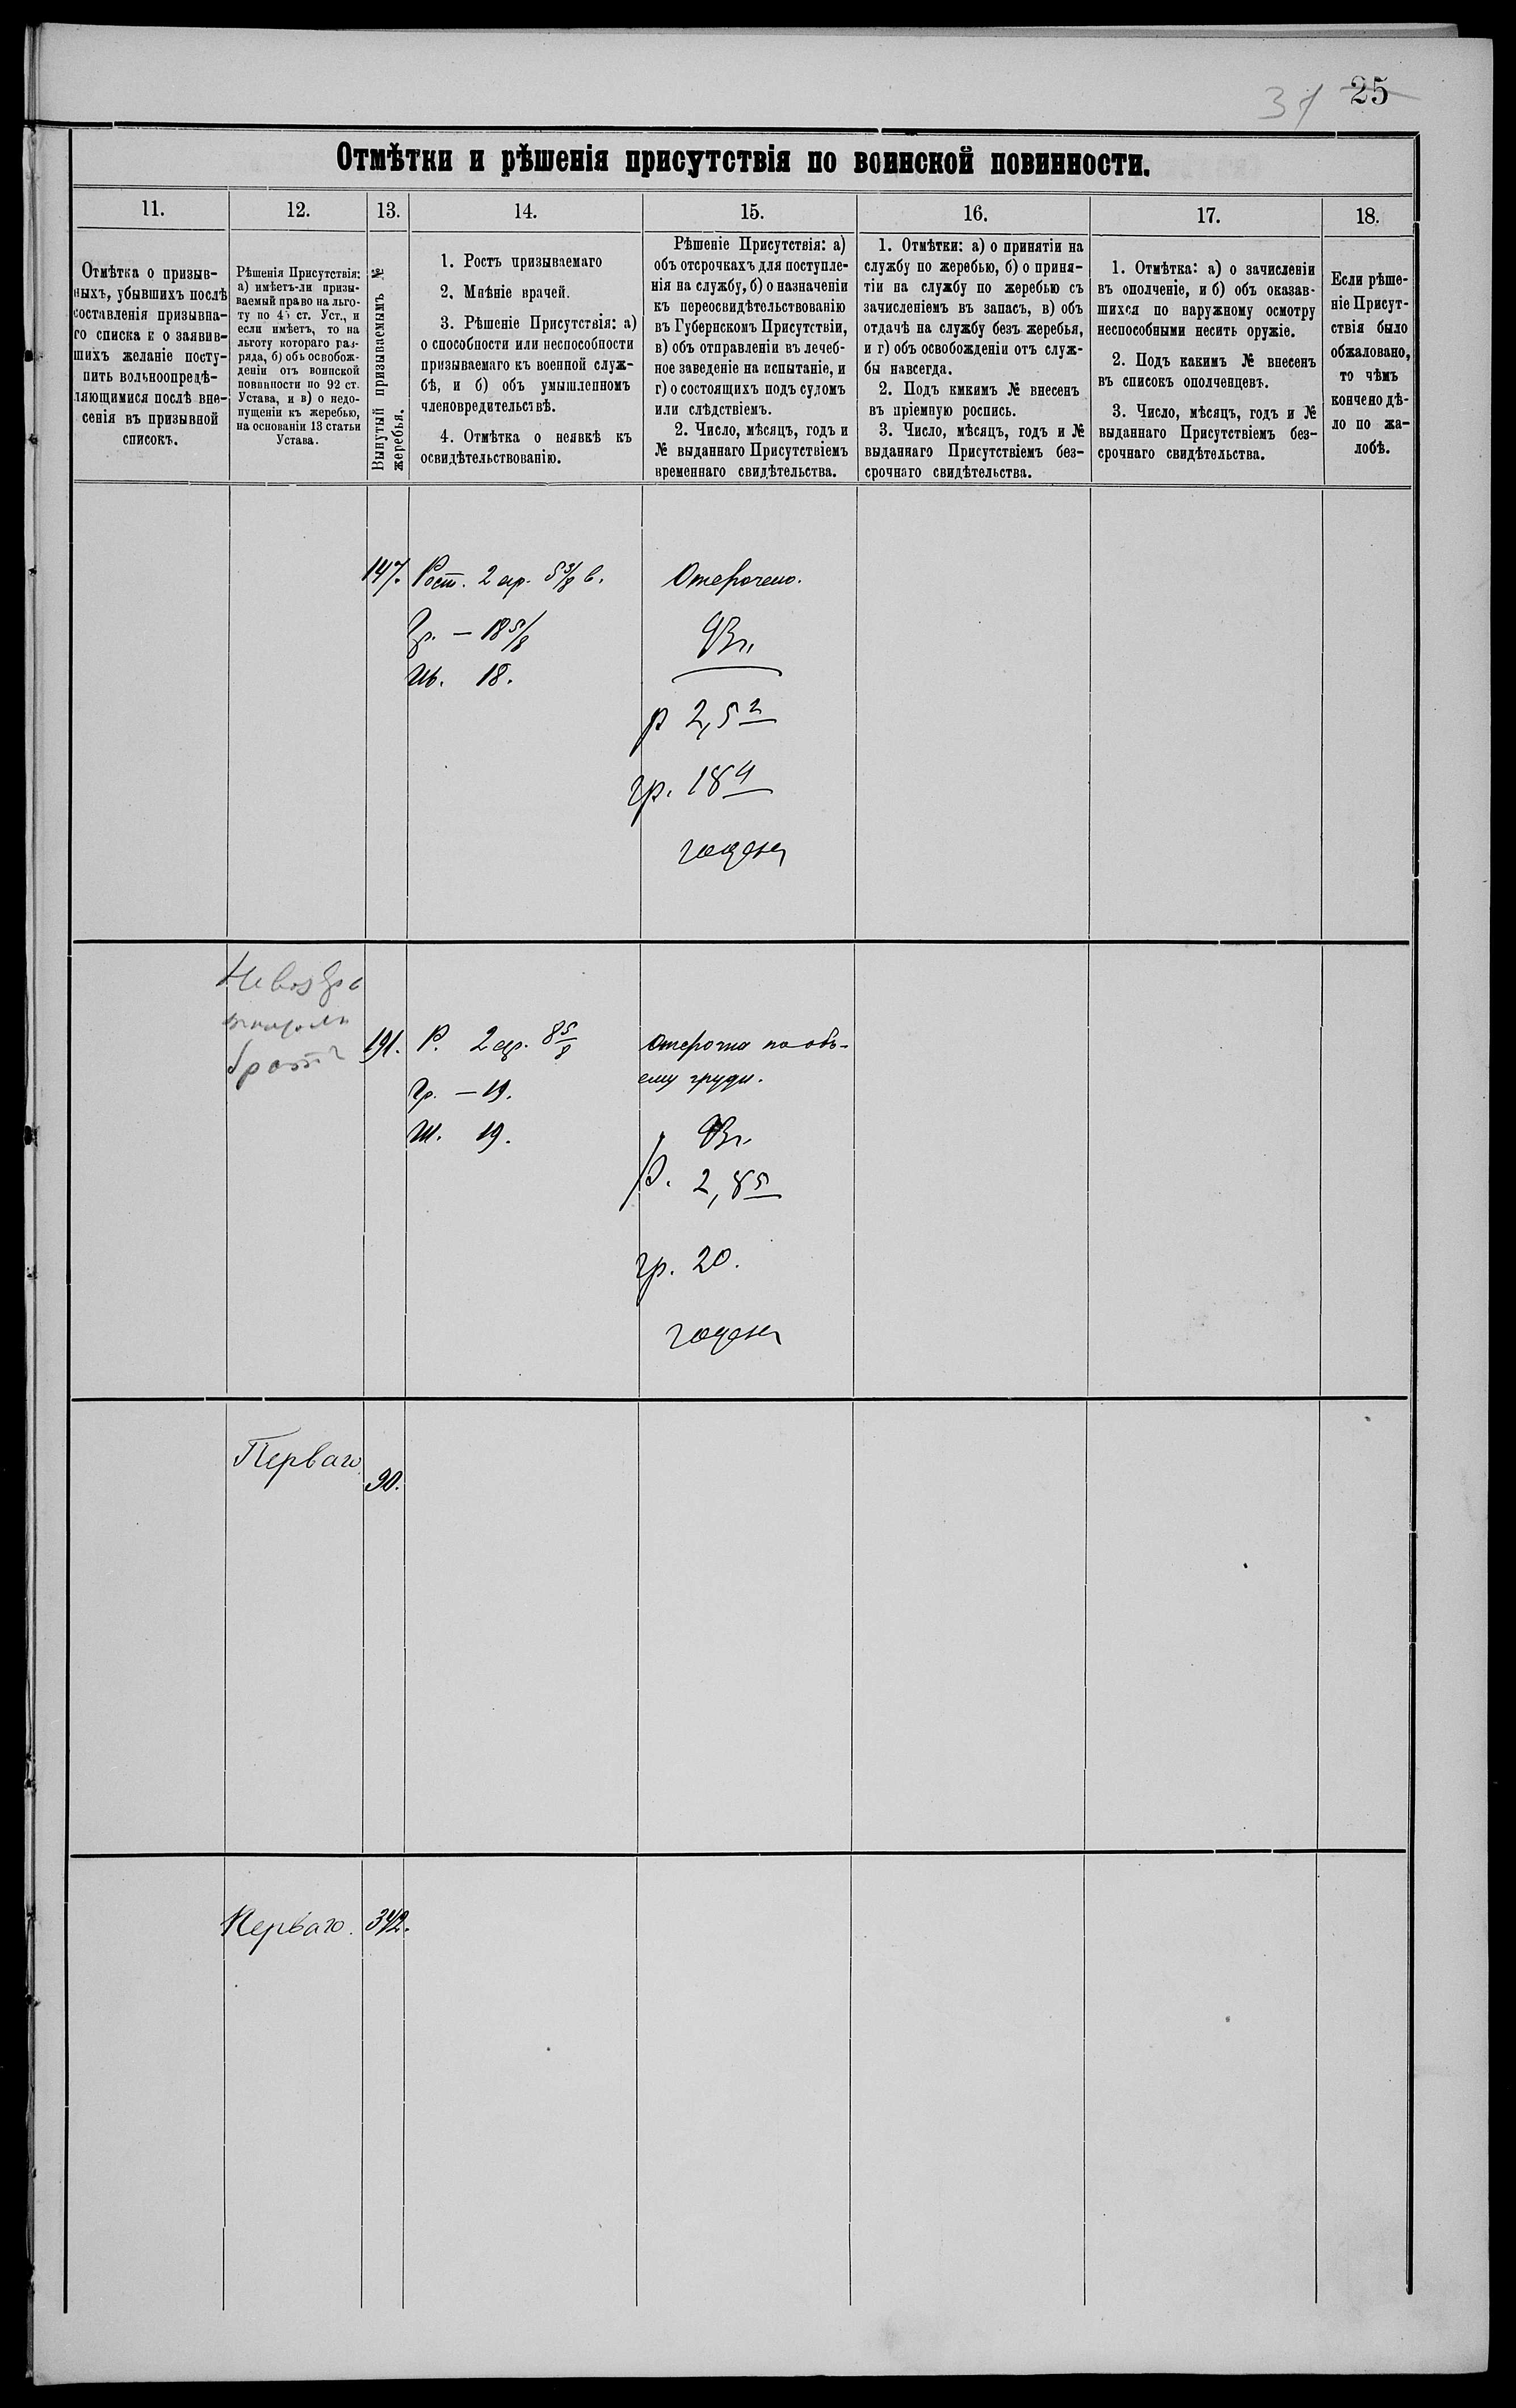 31 25
Отмѣтки и рѣшенія присутствія по воинской повинности.
11. 12. 13. 14. 15. 16. 17. 18.
Отмѣтка о призыв-
ныхъ, убывшихъ послѣ
составленія призывна-
го списка и о заявив-
шихъ желаніе посту-
пить вольноопредѣ-
ляющимися послѣ вне-
сенія въ призывной
списокъ.
Рѣшенія Присутствія:
а) имѣетъ-ли призы-
ваемый право на льго-
ту по 45 ст. Уст., и
если имѣетъ, то на
льготу котораго раз-
ряда, б) объ освобож-
деніи отъ воинской
повинности по 92 ст.
Устава, и в) о недо-
пущеніи къ жеребью,
на основаніи 13 статьи
Устава.
Вынутый призываемымъ №
жеребья.
1. Ростъ призываемаго
2. Мнѣніе врачей.
3. Рѣшеніе Присутствія: а)
о способности или неспособности
призываемаго къ военной служ-
бѣ, и б) объ умышленномъ
членовредительствѣ.
4. Отмѣтка о неявкѣ къ
освидѣтельствованію.
Рѣшеніе Присутствія: а)
объ отсрочкахъ для поступле-
нія на службу, б) о назначеніи
къ переосвидѣтельствованію
въ Губернскомъ Присутствіи,
в) объ отправленіи въ лечеб-
ное заведеніе на испытаніе, и
г) о состоящихъ подъ судомъ
или слѣдствіемъ.
2. Число, мѣсяцъ, годъ и
№ выданнаго Присутствіемъ
временнаго свидѣтельства.
1. Отмѣтки: а) о принятіи на
службу по жеребью, б) о приня-
тіи на службу по жеребью съ
зачисленіемъ въ запасъ, в) объ
отдачѣ на службу безъ жеребья,
и г) объ освобожденіи отъ служ-
бы навсегда.
2. Подъ кмкимъ № внесенъ
въ пріемную роспись.
3. Число, мѣсяцъ, годъ и №
выданнаго Присутствіемъ без-
срочнаго свидѣтельства.
1. Отмѣтка: а) о зачисленіи
въ ополченіе, и б) объ оказав-
шихся по наружному осмотру
неспособными несить оружіе.
2. Подъ какимъ № внесенъ
въ списокъ ополченцевъ.
3. Число, мѣсяцъ, годъ и №
выданнаго Присутствіемъ без-
срочнаго свидѣтельства.
Если рѣше-
ніе Присут-
ствія было
обжаловано,
то чѣмъ
кончено дѣ-
ло по жа-
лобѣ.
147. Рост. 2 ар. 5 3/8 в. Отсрочено.
Гр. — 18 5/8
18.
р 2,5 2
гр. 18 4
годен
191. Р. 2 ар. 8 5/8 Отсрочка по объ-
ему груди.
Гр. — 19.
19.
р. 2,8 5
гр. 20.
годен
Перваго 90.
Перваго. 342.